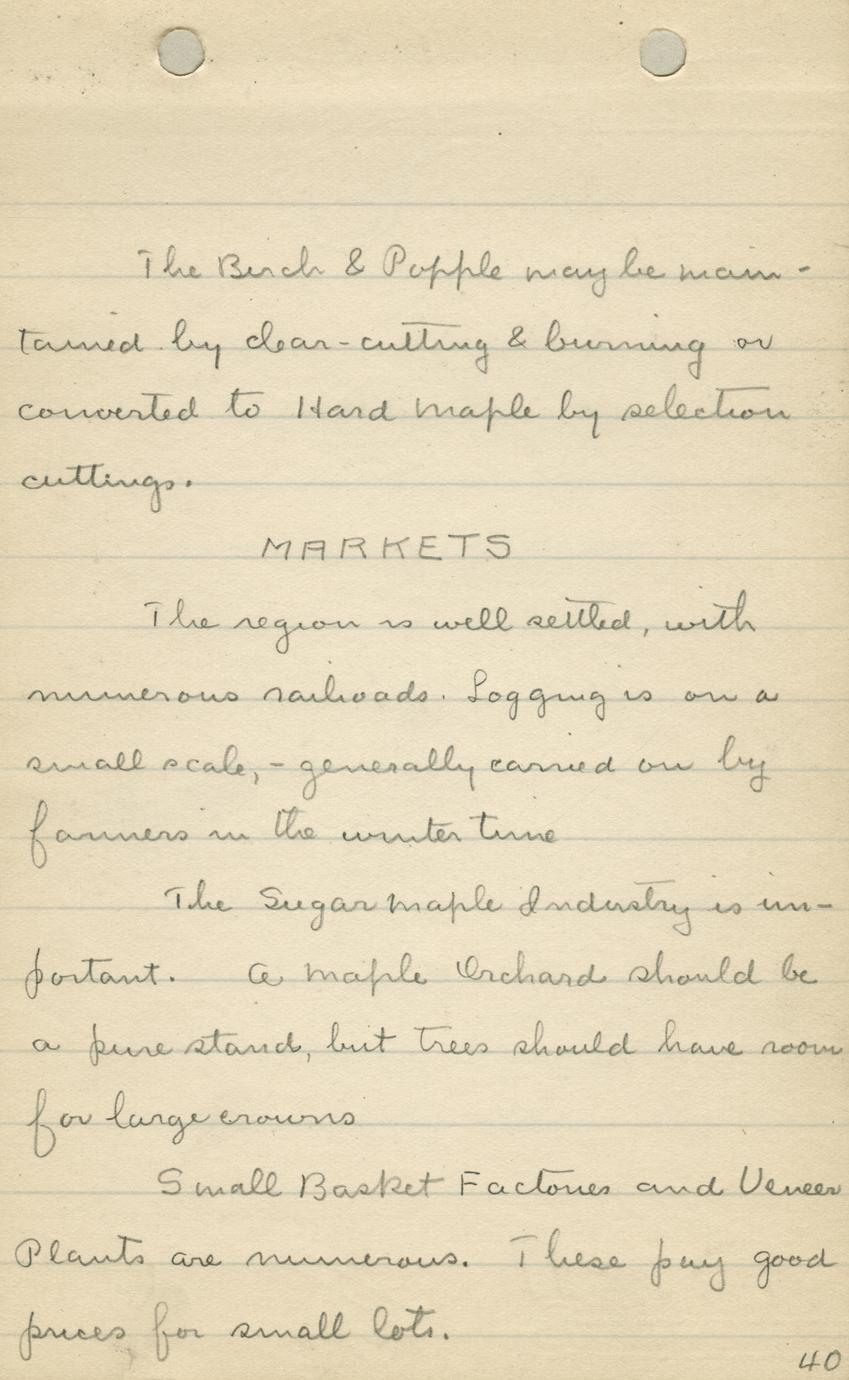 The Birch & Popple may be main-
tained by clear-cutting & burning or
converted to Hard Maple by selection
cuttings.
MARKETS
The region is well settled, with
numerous railroads. Logging is on a
small scale, - generally carried on by
farmers in the winter time
The Sugar Maple Industry is im-
portant. A Maple Orchard should be
a pure stand, but trees should have room
for large crowns
Small Basket Factories and Veneer
Plants are numerous. These pay good
prices for small lots.
40